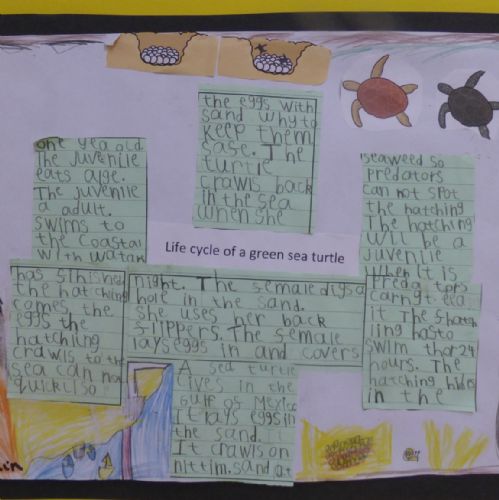 the eggs with
sand why to
keep them
safe. The
turtle
crawls back
in the sea
when she
one yea old
The juvenile
eats alge.
The juvenile
a adult.
swims to
the coastal
with watan
seaweed so
predators
can not spot
the hatching
The hatching
will be a
juvenile
when it is
Life cycle of a green sea turtle
has finished
the hatching
comes the
eggs the
hatchling
crawls to the
sea can not
quickl so
night. The female digs a
hole in the sand.
she uses her back
flippers. The female
lays eggs in and covers
preda tors
carnyt eta
it The shatch
ling hasto
swim thor 24
hours. The
hatching hides
in the
A sea turtle
lives in the
Gulf of Mexico
It lays eggs in
the sand. It
It crawls on
nittim. sand at